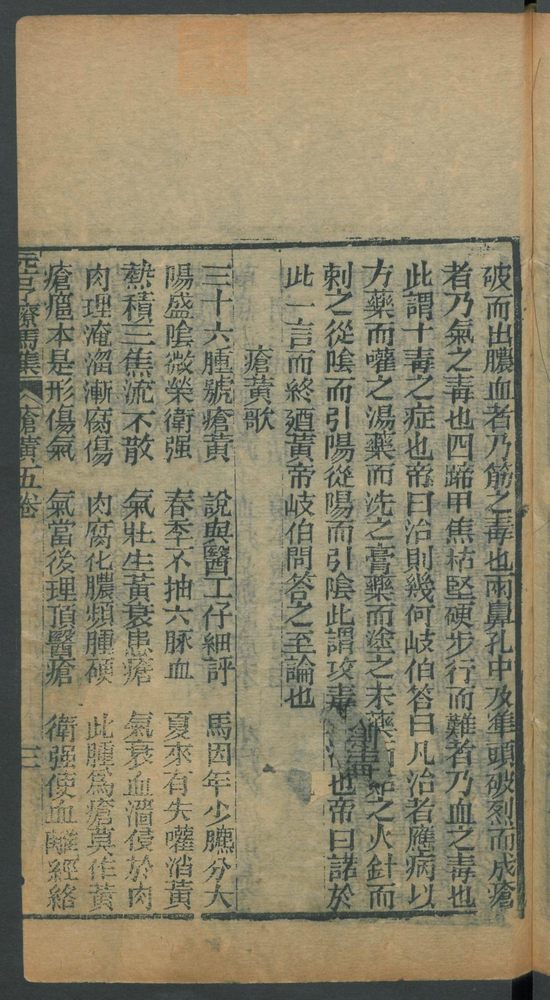 破而出膿血者乃筋之毒也兩鼻孔中及準頭破烈而成瘡
者乃氣之毒也四蹄甲焦枯堅硬步行而難者乃血之毒也
此謂十毒之症也帝曰治則幾何岐伯答曰凡治者應病以
方藥而嚾之湯藥而洗之膏藥而塗之末藥 之火針而
刺之從陰而引陽從陽而引陰此謂攻毒 也帝曰諾於
此一言而終廼黃帝岐伯問答之至論也
瘡黃歌
三十六腫號瘡黃 說與醫工仔細評 馬因年少臕分大
陽盛陰微榮衛强 春季不抽六脉血 夏來有失嚾消黃
熱積三焦流不散 氣壯生黃衰患瘡 氣衰血澀侵於肉
肉理淹溜漸腐傷 肉腐化膿頻腫硬 此腫爲瘡莫作黃
瘡癅本是形傷氣 氣當後理頂醫瘡 衛强使血離經絡
元亨療馬集 瘡黃 五卷 三